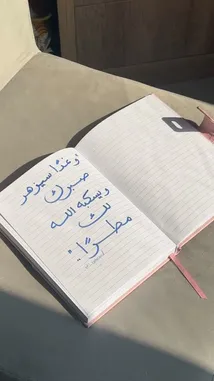 وغدًا سيزهر
صبرك
ويسكبه الله
لك
مطرًا :